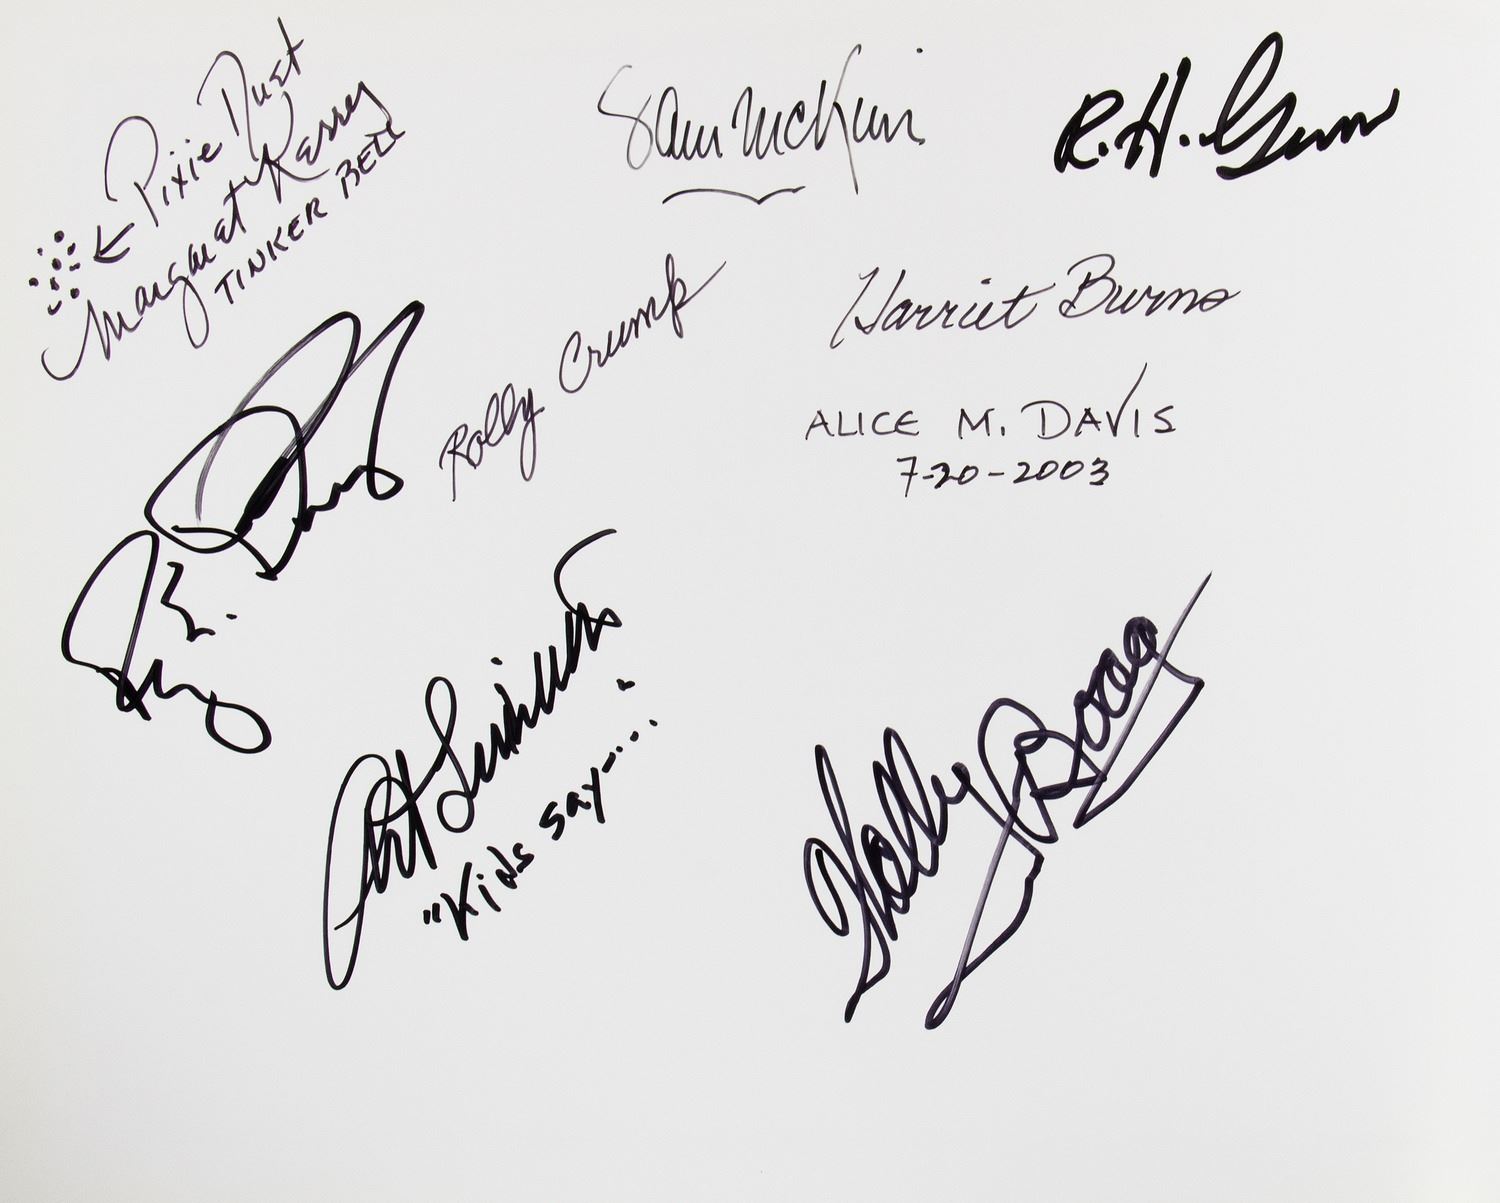 Pixie Dust
Margaret Kerry
TINKER BELL
Sam McKim
R.H. Gurr
Rolly Crump
Harriet Burns
ALICE M. DAVIS
7-20-2003
Roy E. Disney
Art Linkletter
"Kids say -..."
Wally Boag